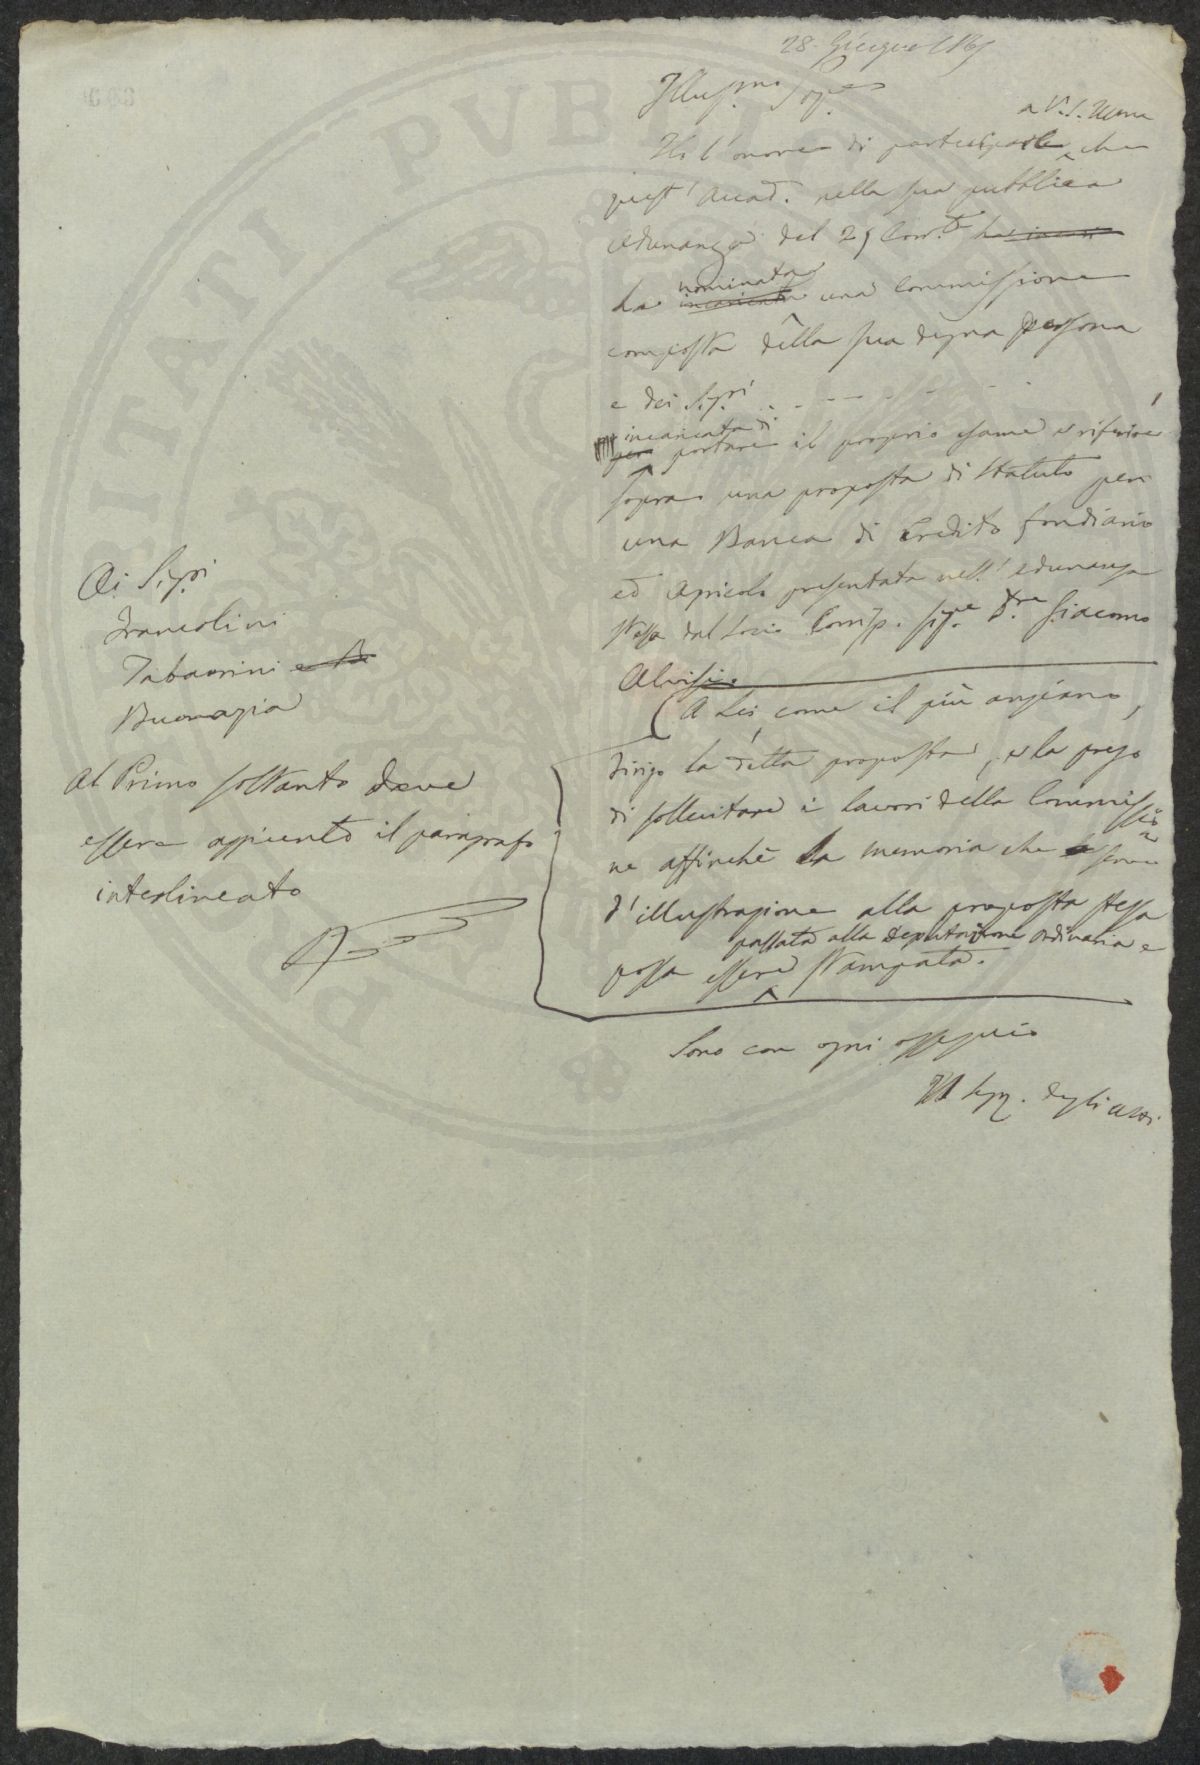 28. Giugno 186
Illus.mo Sig.re
Ho l'onore di partecipare a V. S. Illma che
quest'Accad. nella sua pubblica
adunanza del 25 Corr.te ha
ha incaricata nominata una Commissione
composta della sua degna persona
e dei Sig.ri . . - - - - - -
per incaricata di portare il proprio esame e riferire
sopra una proposta di Statuto per
una Banca di Credito fondiario
ed Agricolo presentata nell'adunanza
stessa dal Socio Corrisp. Sig.e D.re Giacomo
Alvisi.
A Lei, come il più anziano,
dirigo la detta proposta, e la prego
di sollecitare i lavori della Commissio
ne affinchè la memoria che serve
d'illustrazione alla proposta stessa
possa essere passata alla Deputazione ordinaria e stampata.
Sono con ogni ossequio
Il Seg. degli Atti
Ai Sig.ri
Francolini
Tabarrini e
Buonazia
Al Primo soltanto deve
essere aggiunto il paragrafo
interlineato
PVBL
ITATI